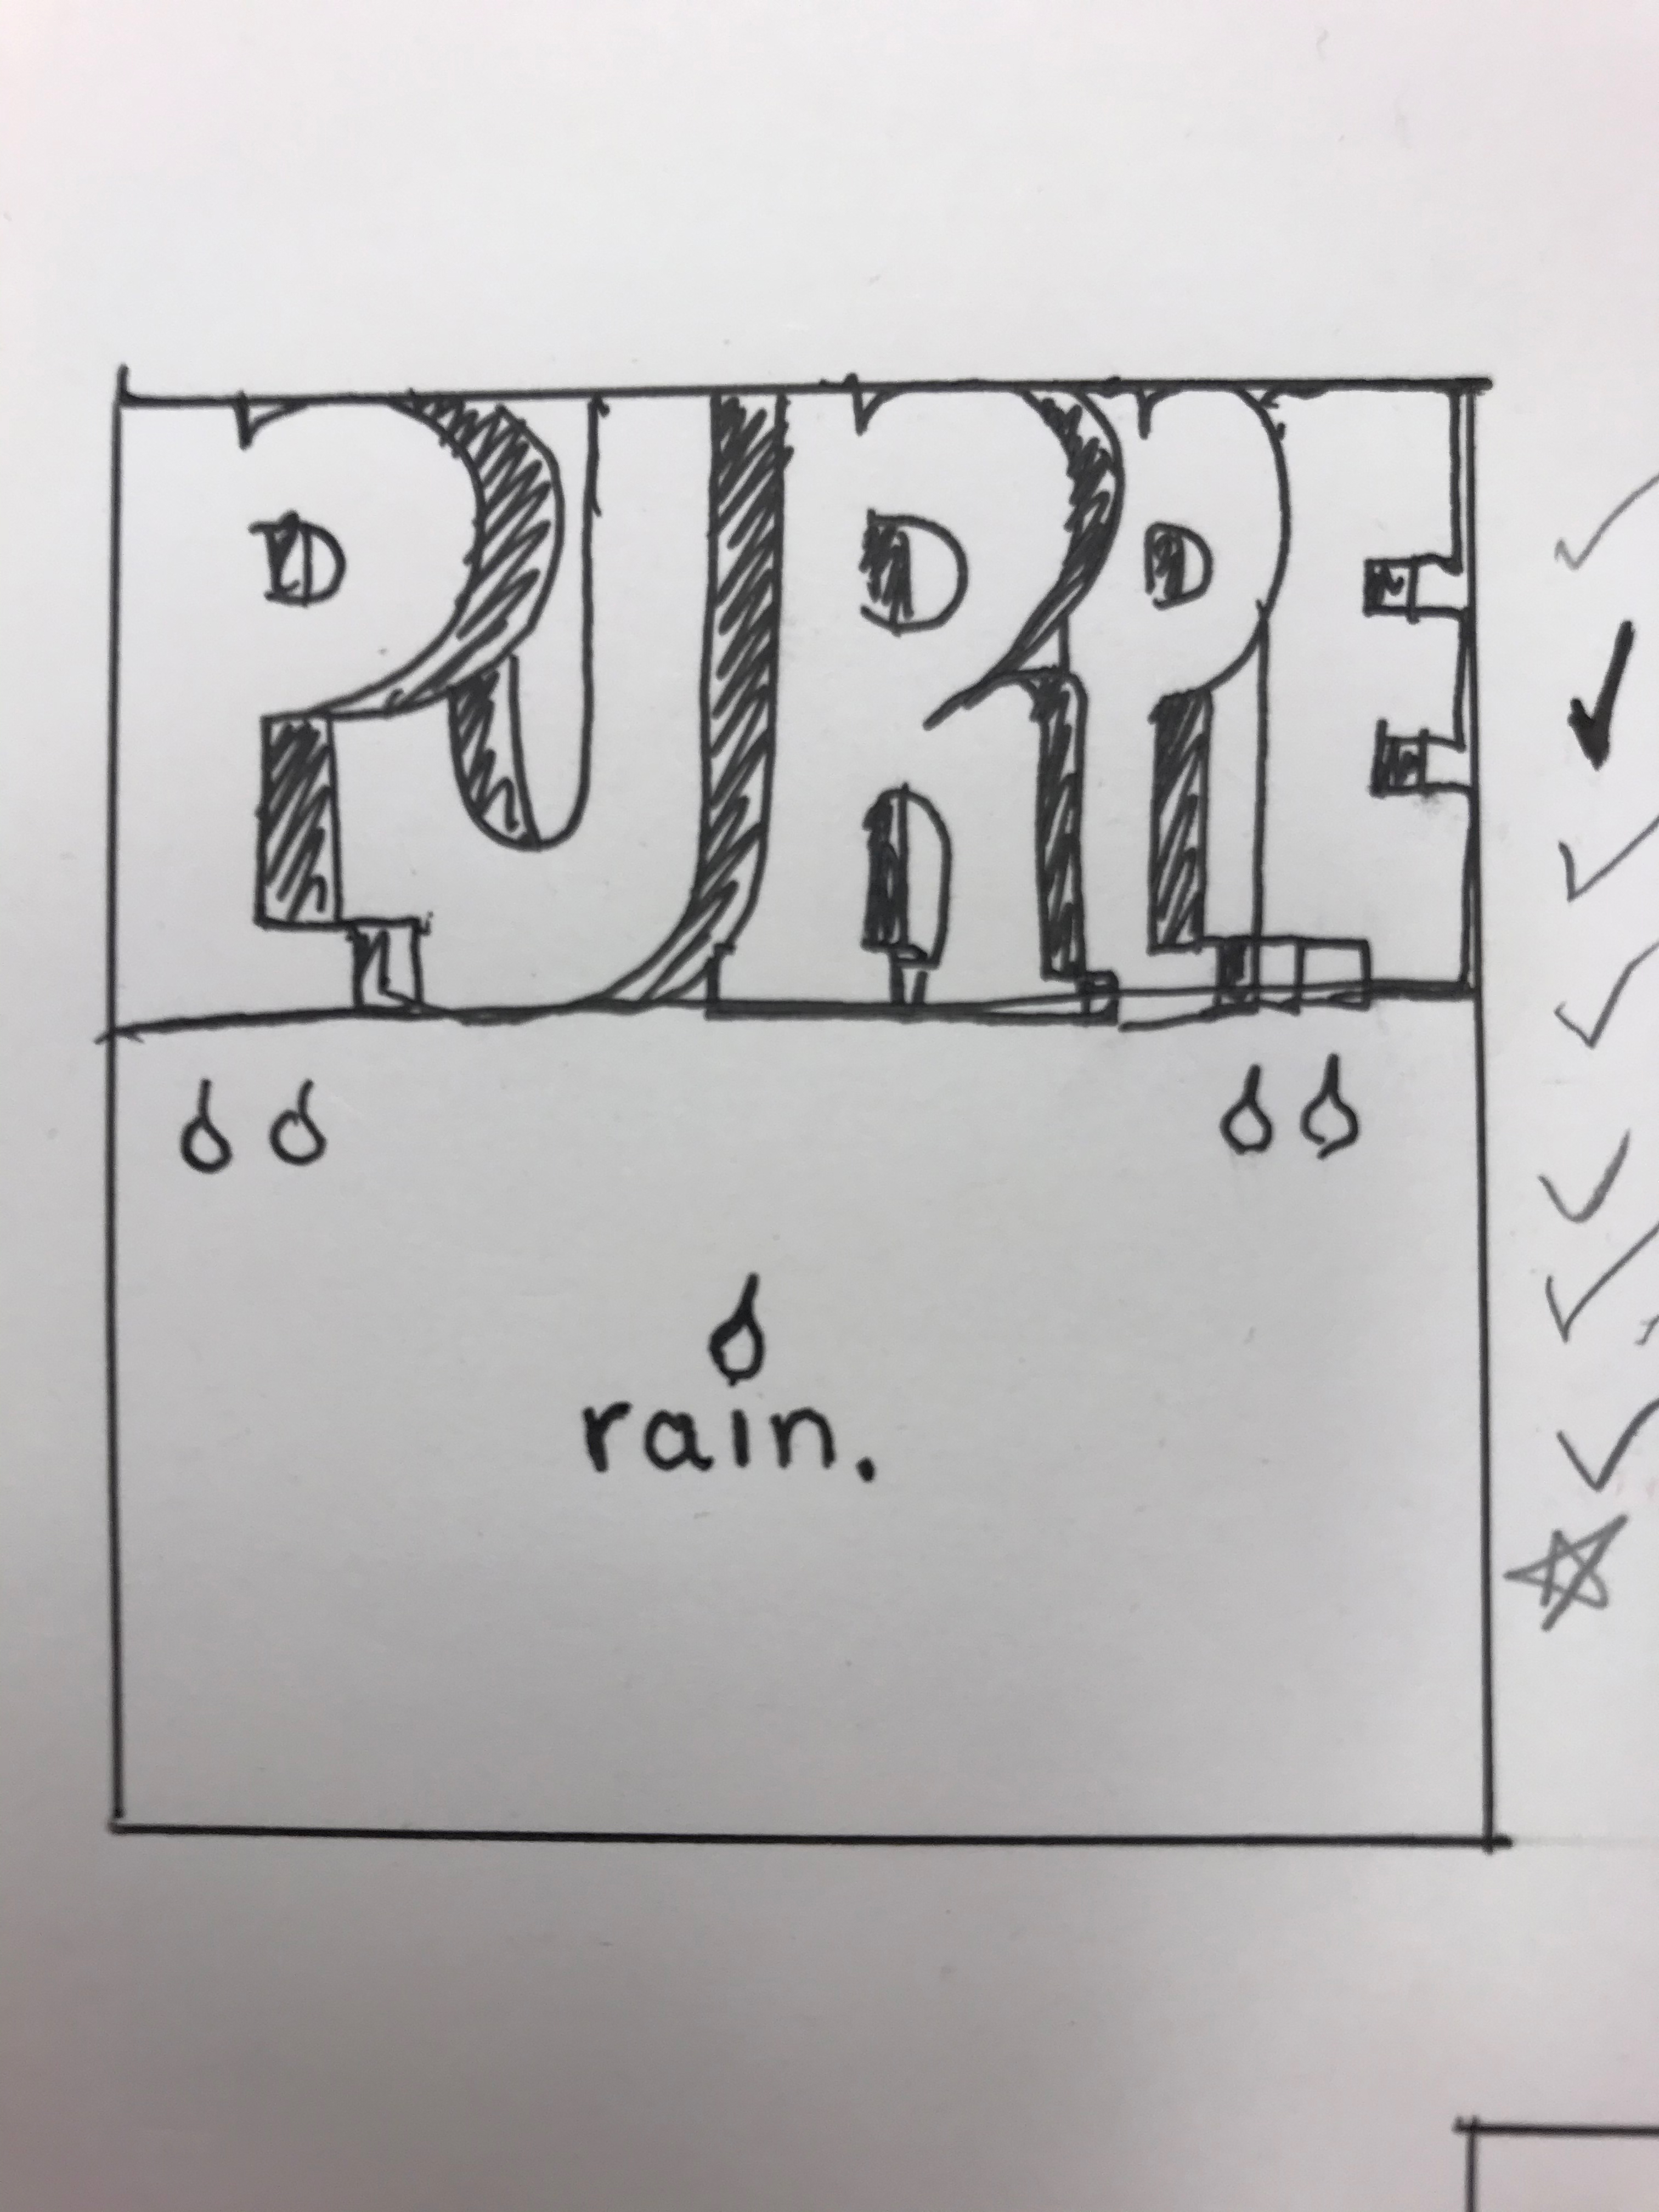 PURPLE
rain.